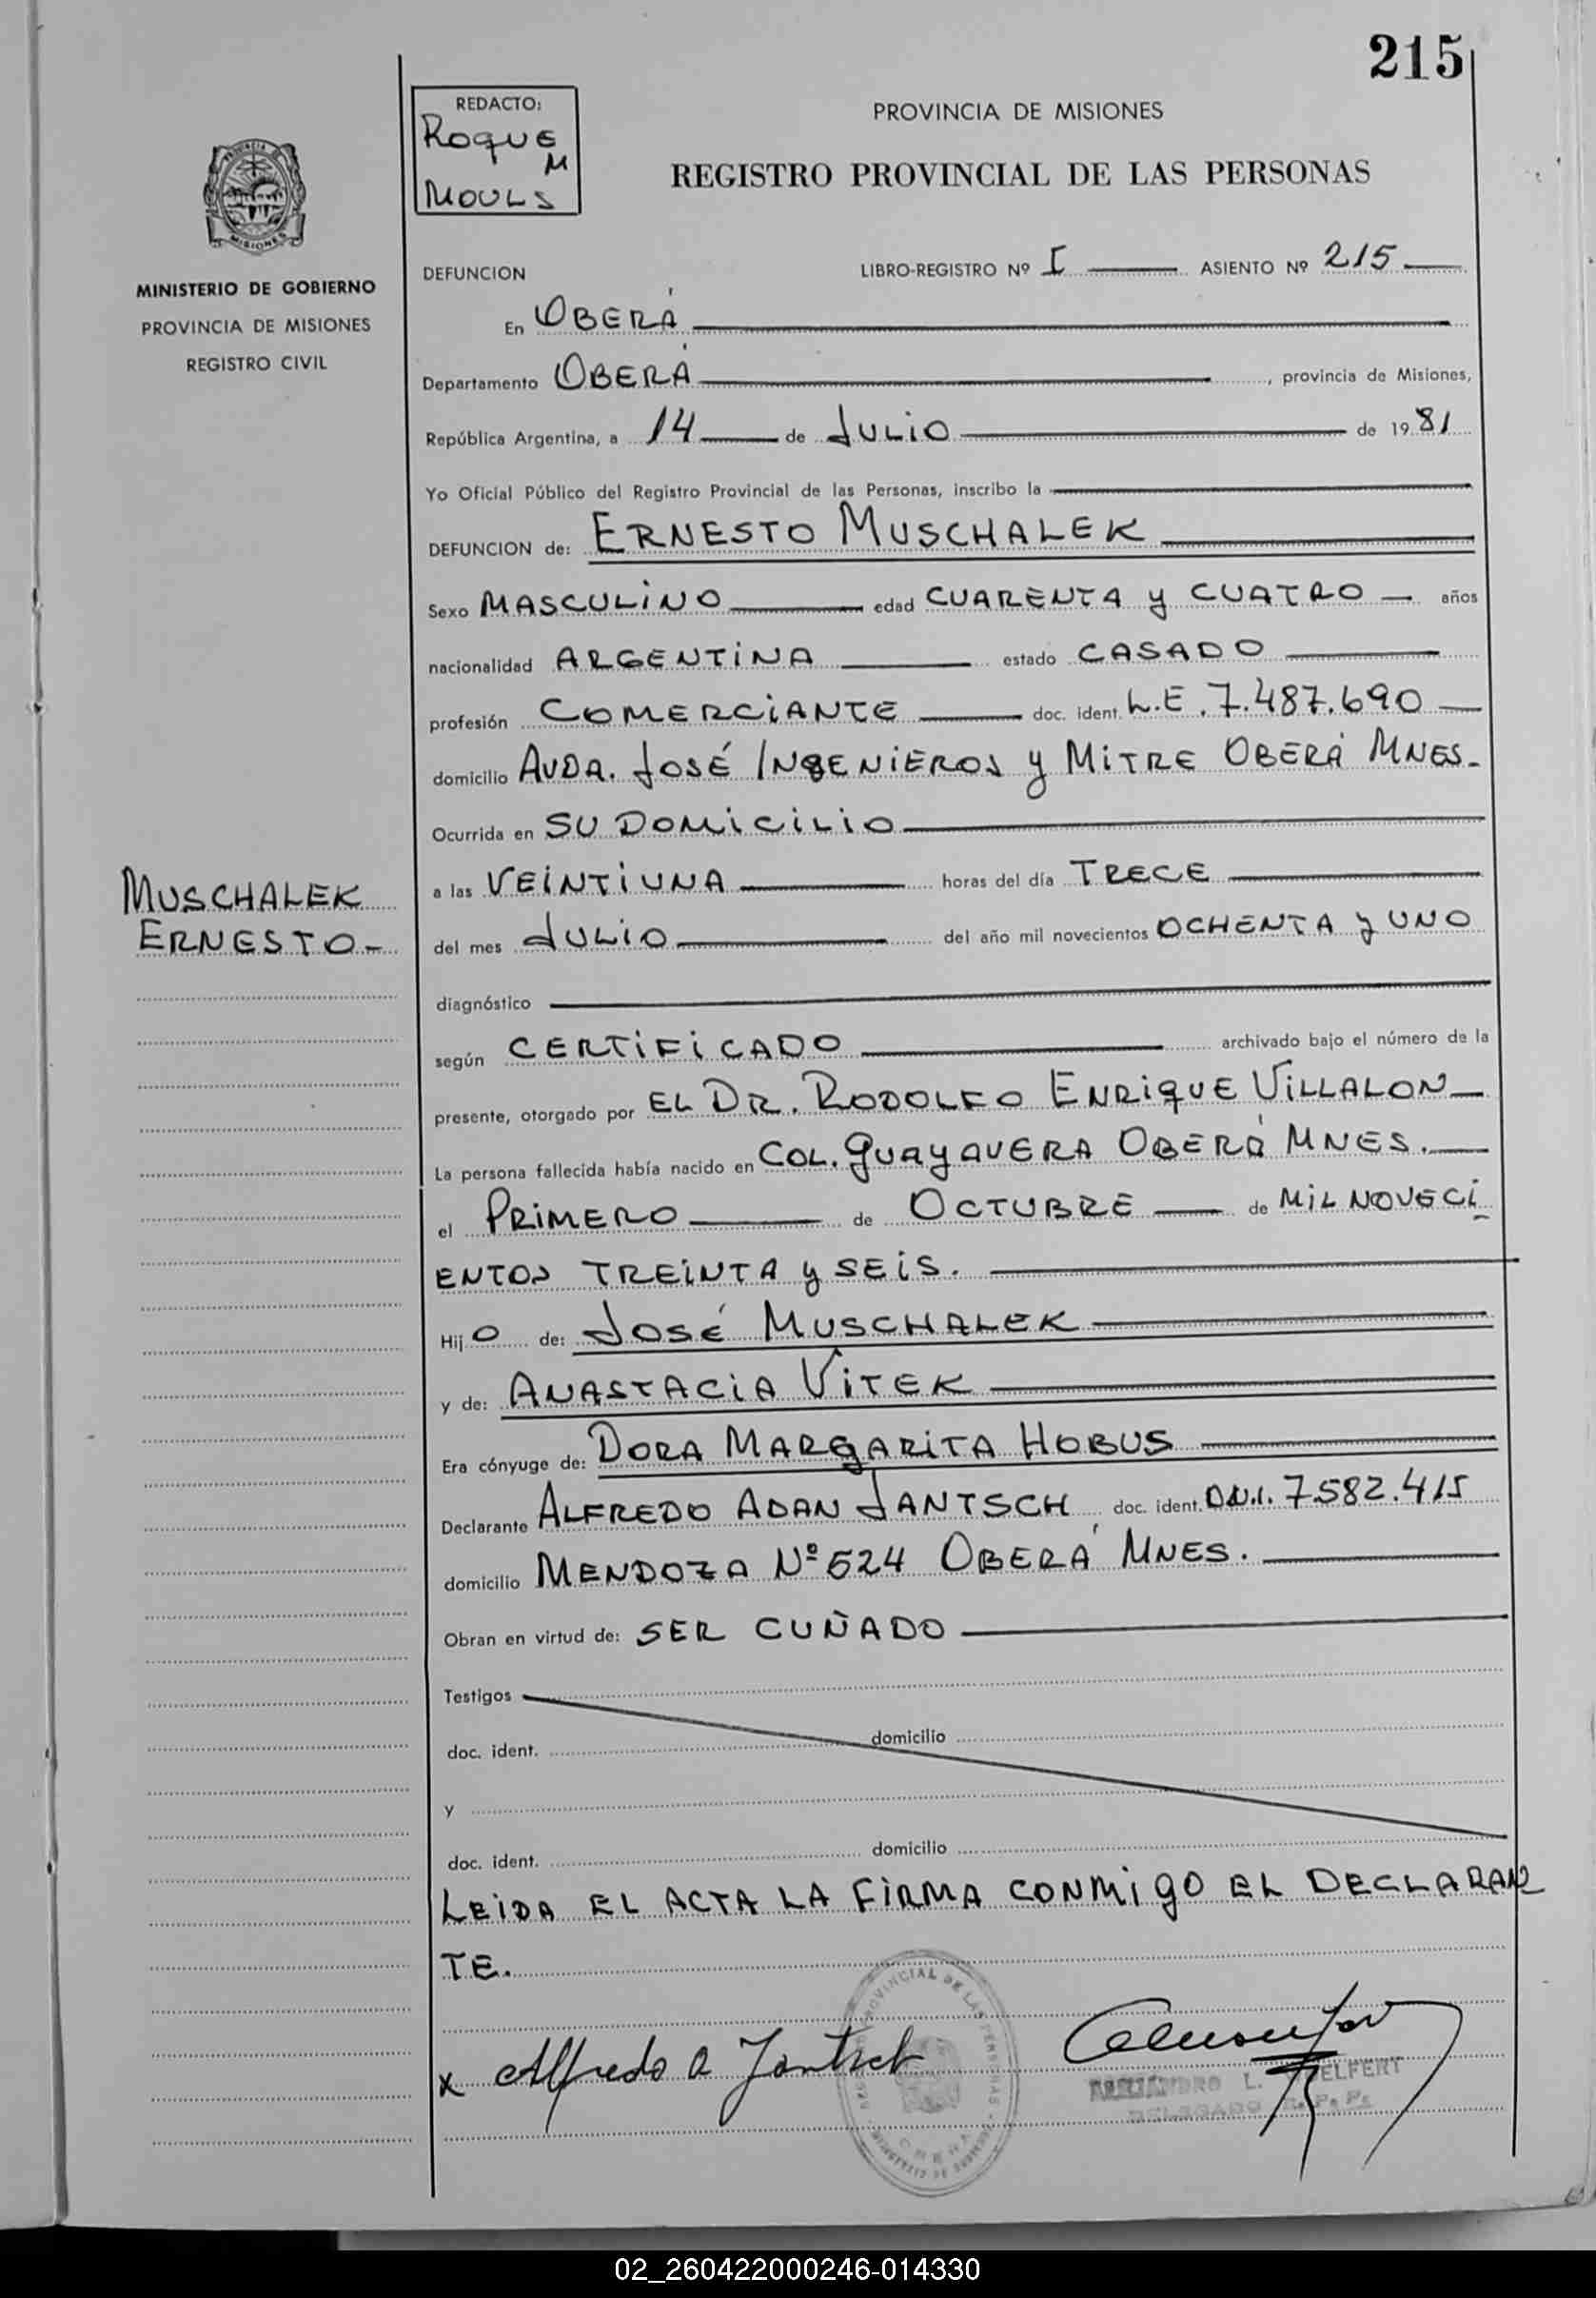 215
REDACTO:
ROQUE M
MOULS
PROVINCIA DE MISIONES
REGISTRO PROVINCIAL DE LAS PERSONAS
MINISTERIO DE GOBIERNO
PROVINCIA DE MISIONES
REGISTRO CIVIL
DEFUNCION LIBRO-REGISTRO Nº I ASIENTO Nº 215
En OBERÁ
Departamento OBERÁ, provincia de Misiones,
República Argentina, a 14 de JULIO de 1981
Yo Oficial Público del Registro Provincial de las Personas, inscribo la
DEFUNCION de: ERNESTO MUSCHALEK
Sexo MASCULINO edad CUARENTA y CUATRO años
nacionalidad ARGENTINA estado CASADO
profesión COMERCIANTE doc. ident. L.E. 7.487.690
domicilio AVDA. JOSÉ INGENIEROS y MITRE OBERÁ MNES.
Ocurrida en SU DOMICILIO
MUSCHALEK
ERNESTO.-
a las VEINTIUNA horas del día TRECE
del mes JULIO del año mil novecientos OCHENTA y UNO
diagnóstico
según CERTIFICADO archivado bajo el número de la
presente, otorgado por EL DR. RODOLFO ENRIQUE VILLALON
La persona fallecida había nacido en COL. GUAYAVERA OBERÁ MNES.
el PRIMERO de OCTUBRE de MIL NOVECI
ENTOS TREINTA y SEIS.
Hijo de: JOSÉ MUSCHALEK
y de: ANASTACIA VITEK
Era cónyuge de: DORA MARGARITA HOBUS
Declarante ALFREDO ADAN JANTSCH doc. ident. D.N.I. 7582.415
domicilio MENDOZA Nº 524 OBERÁ MNES.
Obran en virtud de: SER CUÑADO
Testigos
doc. ident. domicilio
y
doc. ident. domicilio
LEIDA EL ACTA LA FIRMA CONMIGO EL DECLARAN
TE.
x Alfredo A Jantsch
DELEGADO R.P.P.
02_260422000246-014330